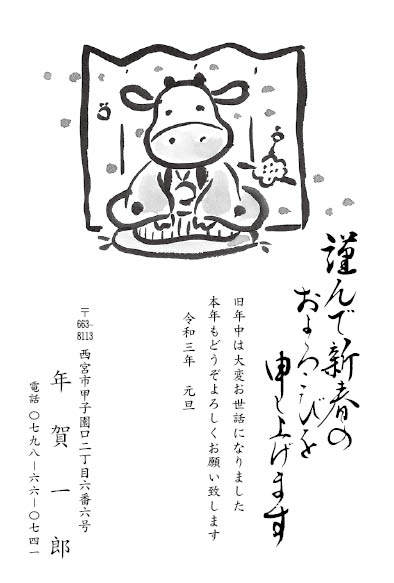 謹んで新春の
およろこびを
申し上げます
旧年中は大変お世話になりました
本年もどうぞよろしくお願い致します
令和三年 元旦
〒663-8113 西宮市甲子園口二丁目六番六号
年賀一郎
電話 〇七九八―六六―〇七四一